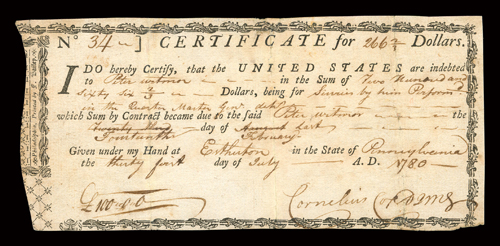 Nº 34 ] CERTIFICATE for 266⅔ Dollars.
I DO hereby Certify, that the UNITED STATES are indebted
to Peter in the Sum of Two Hundred and
Sixty Six ⅔ Dollars, being for Service by him Perform'd
in the Quarter Master Genl. dept.
which Sum by Contract became due to the said Peter the
day of August last
February
Given under my Hand at Estherton in the State of Pennsylvania
the thirty first day of July A. D. 1780
£100..0..0 Cornelius Cox D QMG